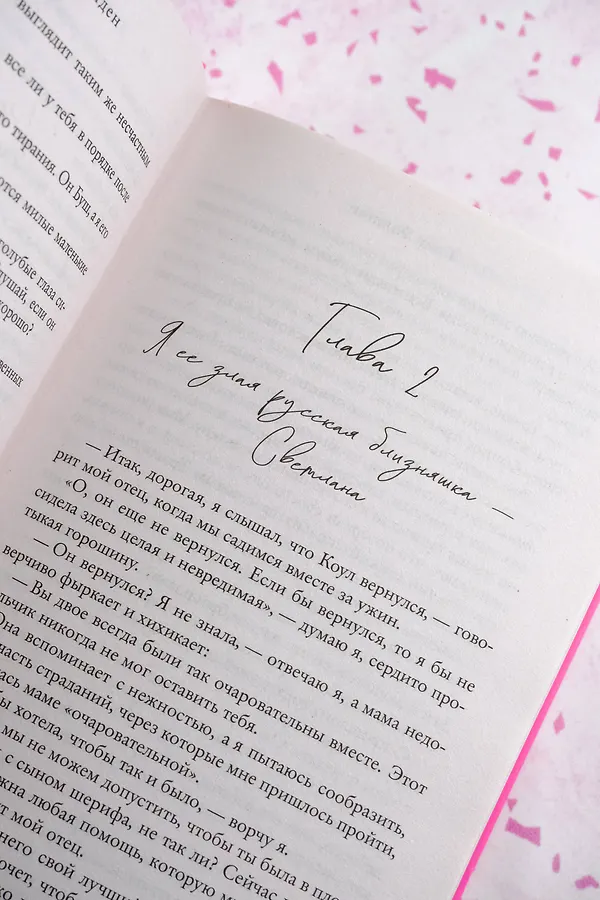 йден
выглядит таким же несчастным
все ли у тебя в порядке после
то тирания. Он Буш, а я его
ются милые маленькие
голубые глаза си-
лушай, если он
хорошо?
венных
Глава 2
Я ее злая русская близняшка —
Светлана
— Итак, дорогая, я слышал, что Коул вернулся, — гово-
рит мой отец, когда мы садимся вместе за ужин.
«О, он еще не вернулся. Если бы вернулся, то я бы не
сидела здесь целая и невредимая», — думаю я, сердито про-
тыкая горошину.
— Он вернулся? Я не знала, — отвечаю я, а мама недо-
верчиво фыркает и хихикает:
— Вы двое всегда были так очаровательны вместе. Этот
льчик никогда не мог оставить тебя.
Она вспоминает с нежностью, а я пытаюсь сообразить,
часть страданий, через которые мне пришлось пройти,
ась маме «очаровательной».
бы хотела, чтобы так и было, — ворчу я.
мы не можем допустить, чтобы ты была в пло
с сыном шерифа, не так ли? Сейчас
жна любая помощь, которую
т мой отец.
него свой лучши
очет, чтоб